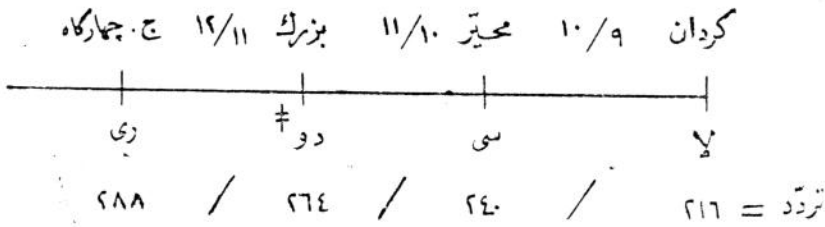 كردان ١٠/٩ محيّر ١١/١٠ بزرك ١٢/١١ ج. جهاركاه
لا سى دو‡ رى
تردّد = ٢١٦ / ٢٤٠ / ٢٦٤ / ٢٨٨